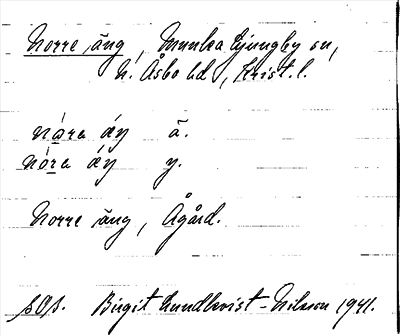 Norre äng, Munka Ljungby sn,
N. Åsbo hd, Krist. l.
nára áŋ ä.
nóra áŋ y.
Norre äng, Ågård.
sOs. Birgit Lundkvist-Nilsson 1941.